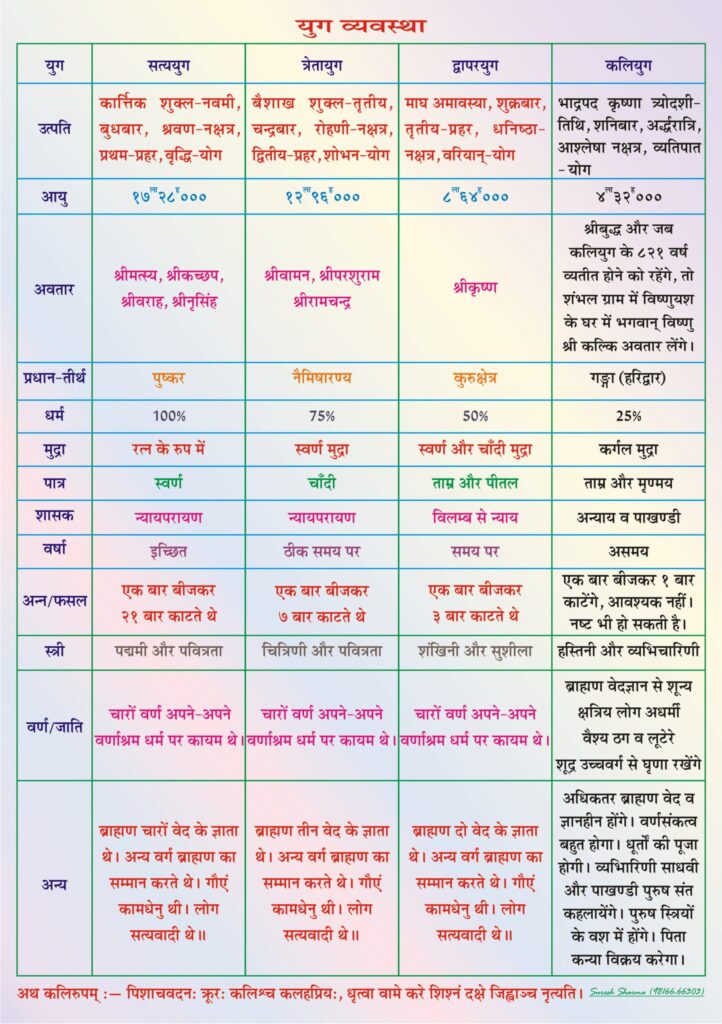 युग व्यवस्था
युग
सत्ययुग
त्रेतायुग
द्वापरयुग
कलियुग
उत्पति
कार्त्तिक शुक्ल-नवमी,
बुधबार, श्रवण-नक्षत्र,
प्रथम-प्रहर, वृद्धि-योग
बैशाख शुक्ल-तृतीय,
चन्द्रबार, रोहणी-नक्षत्र,
द्वितीय-प्रहर, शोभन-योग
माघ अमावस्या, शुक्रबार,
तृतीय-प्रहर, धनिष्ठा-
नक्षत्र, वरियान्-योग
भाद्रपद कृष्णा त्र्योदशी-
तिथि, शनिबार, अर्द्धरात्रि,
आश्लेषा नक्षत्र, व्यतिपात
-योग
आयु
१७ला२८ह०००
१२ला९६ह०००
८ला६४ह०००
४ला३२ह०००
अवतार
श्रीमत्स्य, श्रीकच्छप,
श्रीवराह, श्रीनृसिंह
श्रीवामन, श्रीपरशुराम
श्रीरामचन्द्र
श्रीकृष्ण
श्रीबुद्ध और जब
कलियुग के ८२१ वर्ष
व्यतीत होने को रहेंगे, तो
शंभल ग्राम में विष्णुयश
के घर में भगवान् विष्णु
श्री कल्कि अवतार लेंगे।
प्रधान-तीर्थ
पुष्कर
नैमिषारण्य
कुरुक्षेत्र
गङ्गा (हरिद्वार)
धर्म
100%
75%
50%
25%
मुद्रा
रत्न के रुप में
स्वर्ण मुद्रा
स्वर्ण और चाँदी मुद्रा
कर्गल मुद्रा
पात्र
स्वर्ण
चाँदी
ताम्र और पीतल
ताम्र और मृण्मय
शासक
न्यायपरायण
न्यायपरायण
विलम्ब से न्याय
अन्याय व पाखण्डी
वर्षा
इच्छित
ठीक समय पर
समय पर
असमय
अन्न/फसल
एक बार बीजकर
२१ बार काटते थे
एक बार बीजकर
७ बार काटते थे
एक बार बीजकर
३ बार काटते थे
एक बार बीजकर १ बार
काटेंगे, आवश्यक नहीं।
नष्ट भी हो सकती है।
स्त्री
पद्ममी और पवित्रता
चित्रिणी और पवित्रता
शंखिनी और सुशीला
हस्तिनी और व्यभिचारिणी
वर्ण/जाति
चारों वर्ण अपने-अपने
वर्णाश्रम धर्म पर कायम थे।
चारों वर्ण अपने-अपने
वर्णाश्रम धर्म पर कायम थे।
चारों वर्ण अपने-अपने
वर्णाश्रम धर्म पर कायम थे।
ब्राह्मण वेदज्ञान से शून्य
क्षत्रिय लोग अधर्मी
वैश्य ठग व लूटेरे
शूद्र उच्चवर्ग से घृणा रखेंगे
अन्य
ब्राह्मण चारों वेद के ज्ञाता
थे। अन्य वर्ग ब्राह्मण का
सम्मान करते थे। गौएं
कामधेनु थी। लोग
सत्यवादी थे॥
ब्राह्मण तीन वेद के ज्ञाता
थे। अन्य वर्ग ब्राह्मण का
सम्मान करते थे। गौएं
कामधेनु थी। लोग
सत्यवादी थे॥
ब्राह्मण दो वेद के ज्ञाता
थे। अन्य वर्ग ब्राह्मण का
सम्मान करते थे। गौएं
कामधेनु थी। लोग
सत्यवादी थे॥
अधिकतर ब्राह्मण वेद व
ज्ञानहीन होंगे। वर्णसंकत्व
बहुत होगा। धूर्तों की पूजा
होगी। व्यभिारिणी साधवी
और पाखण्डी पुरुष संत
कहलायेंगे। पुरुष स्त्रियों
के वश में होंगे। पिता
कन्या विक्रय करेगा।
अथ कलिरुपम् :— पिशाचवदनः क्रूरः कलिश्च कलहप्रियः, धृत्वा वामे करे शिश्नं दक्षे जिह्वाञ्च नृत्यति। Suresh Sharma (98166.66303)